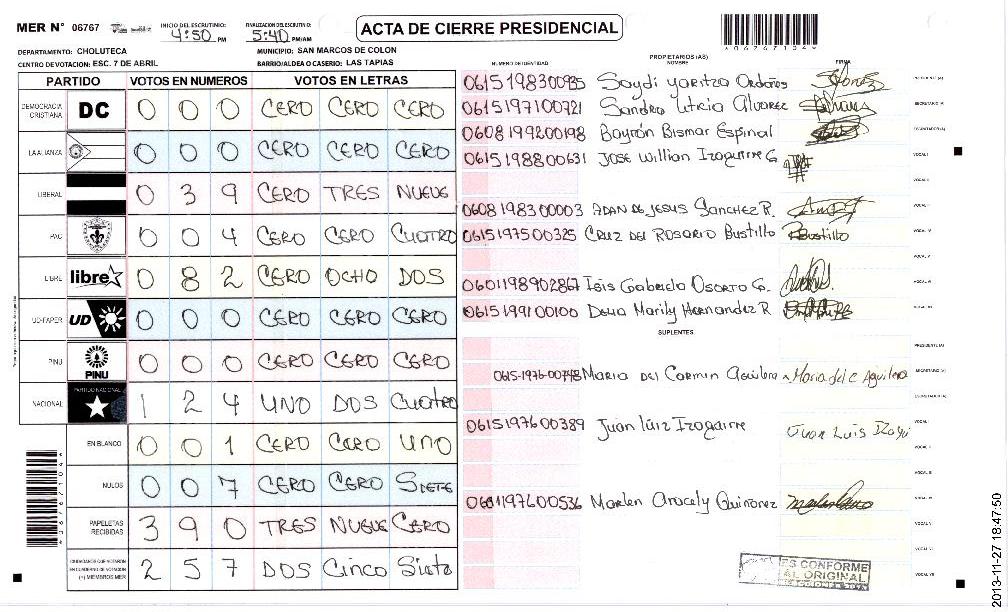 MER N° 06767
INICIO DEL ESCRUTINIO: 4:50 PM
FINALIZACION DEL ESCRUTINIO: 5:40 PM/AM
ACTA DE CIERRE PRESIDENCIAL
DEPARTAMENTO: CHOLUTECA
MUNICIPIO: SAN MARCOS DE COLON
CENTRO DE VOTACION: ESC. 7 DE ABRIL
BARRIO/ALDEA O CASERIO: LAS TAPIAS
PARTIDO VOTOS EN NUMEROS VOTOS EN LETRAS
DEMOCRACIA CRISTIANA DC 0 0 0 CERO CERO CERO
LA ALIANZA 0 0 0 CERO CERO CERO
LIBERAL 0 3 9 CERO TRES NUEVE
PAC 0 0 4 CERO CERO CUATRO
LIBRE libre 0 8 2 CERO OCHO DOS
UD-FAPER UD 0 0 0 CERO CERO CERO
PINU PINU 0 0 0 CERO CERO CERO
NACIONAL PARTIDO NACIONAL 1 2 4 UNO DOS CUATRO
EN BLANCO 0 0 1 CERO CERO UNO
NULOS 0 0 7 CERO CERO SIETE
PAPELETAS RECIBIDAS 3 9 0 TRES NUEVE CERO
CIUDADANOS QUE VOTARON EN CUADERNO DE VOTACION (+) MIEMBROS MER 2 5 7 DOS Cinco Siete
PROPIETARIOS (AS)
NUMERO DE IDENTIDAD NOMBRE FIRMA
0615198300935 Saydi Yaritza Ordoñes PRESIDENTE (A)
0615197100721 Sandra Leticia Alvarez SECRETARIO (A)
0608199200198 Bayron Bismar Espinal ESCRUTADOR (A)
0615198800631 Jose Willian Izaguirre G. VOCAL I
VOCAL II
0608198300003 ADAN DE JESUS SANCHEZ R. VOCAL III
0615197500325 CRUZ DEL ROSARIO BUSTILLO Bustillo VOCAL IV
VOCAL V
0601198902867 Isis Gabriela Osorto G. VOCAL VI
0615199100100 Delia Marily Hernandez R VOCAL VII
SUPLENTES
PRESIDENTE (A)
0615-1976-00748 Maria del Carmin Aguilera Maria del C Aguilera SECRETARIO (A)
ESCRUTADOR (A)
0615197600389 Juan Luiz Izaguirre Juan Luis Izagui VOCAL I
VOCAL II
VOCAL III
0601197600536 Marlen Aracely Quiñonez VOCAL IV
VOCAL V
VOCAL VI
VOCAL VII
ES CONFORME
AL ORIGINAL
2013-11-27 18:47:50